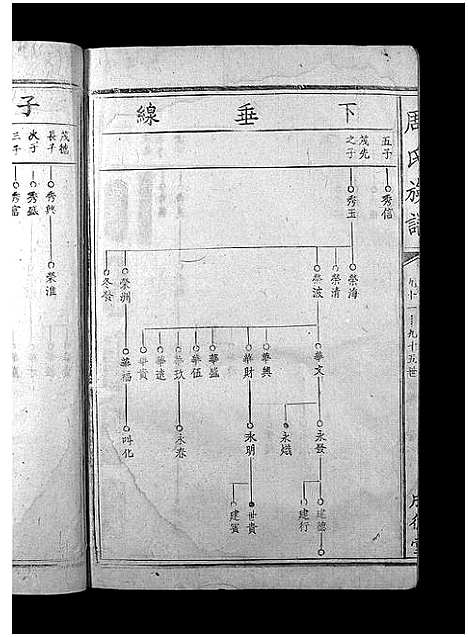 周氏族譜
九十一—九十五世
下垂線
五子
秀信
茂先之子
秀玉
榮海
榮清
榮波
榮洲
冬發
華文
華興
華財
華盛
華伍
華玖
華遠
華貴
華福
永發
永熾
永明
永春
叫化
建德
建行
世貴
建賓
子
茂德長子
秀興
榮淮
次子
秀盛
三子
秀富